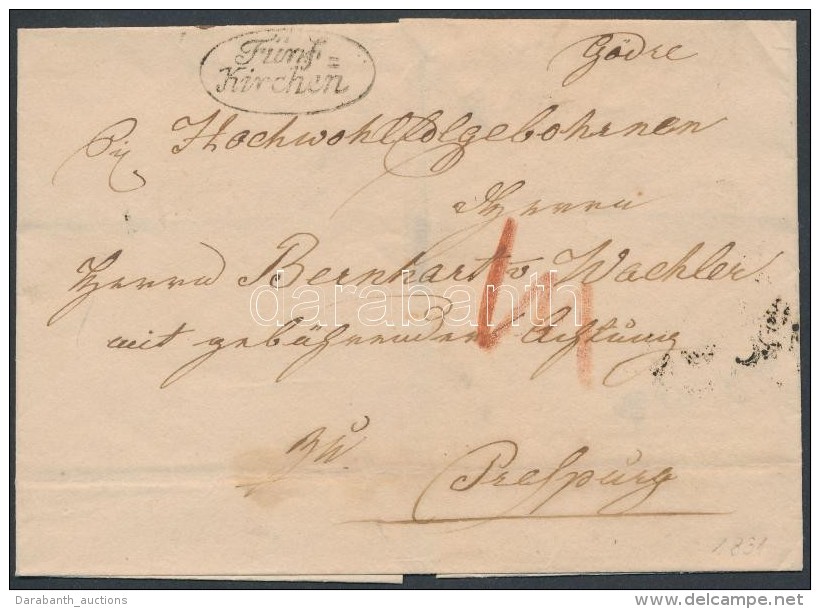 Fünf=
Kirchen
Gödre
Hochwohlgebohrnen
Herrn
Herrn Bernhart v Wachler
mit gebührender Achtung
zu
Presspurg
1831
darabanth
Darabanth_auctions
www.delcampe.net